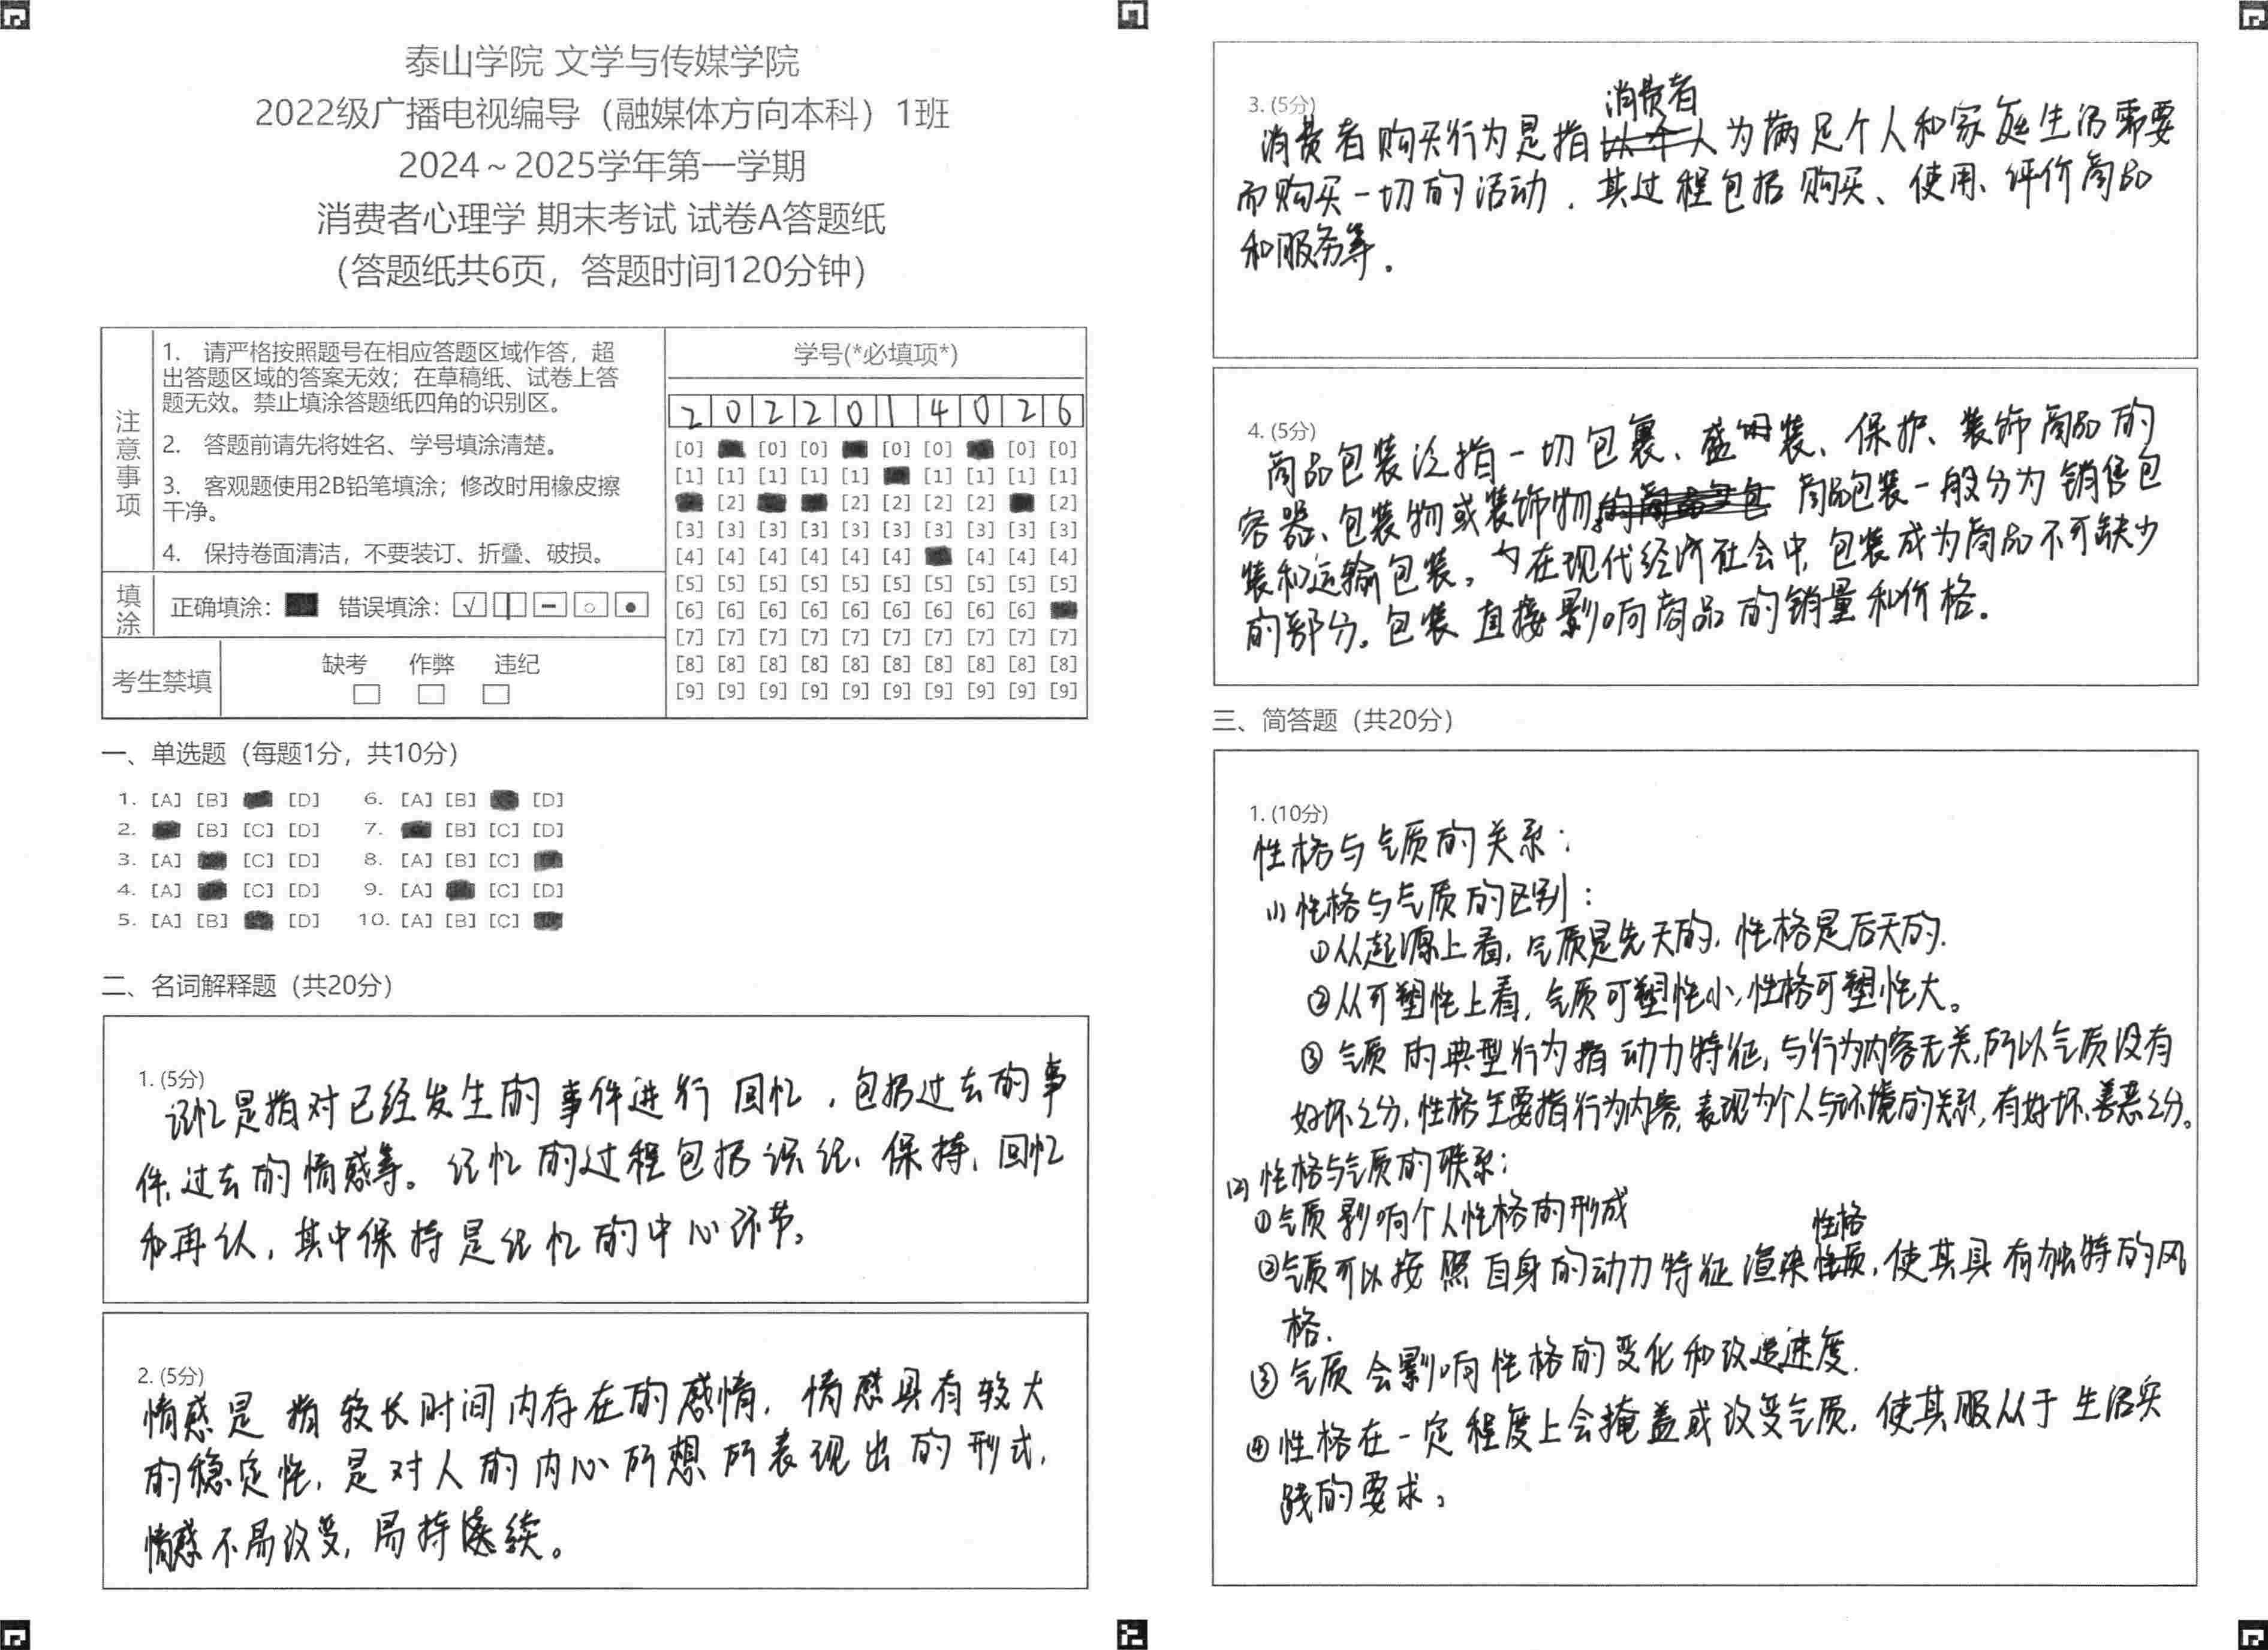 泰山学院 文学与传媒学院
2022级广播电视编导（融媒体方向本科）1班
2024～2025学年第一学期
消费者心理学 期末考试 试卷A答题纸
（答题纸共6页，答题时间120分钟）
注意事项
1. 请严格按照题号在相应答题区域作答，超
出答题区域的答案无效；在草稿纸、试卷上答
题无效。禁止填涂答题纸四角的识别区。
2. 答题前请先将姓名、学号填涂清楚。
3. 客观题使用2B铅笔填涂；修改时用橡皮擦
干净。
4. 保持卷面清洁，不要装订、折叠、破损。
填涂
正确填涂： 错误填涂：
考生禁填
缺考 作弊 违纪
学号(*必填项*)
2 0 2 2 0 1 4 0 2 6
[0] [0] [0] [0] [0] [0] [0]
[1] [1] [1] [1] [1] [1] [1] [1] [1]
[2] [2] [2] [2] [2] [2]
[3] [3] [3] [3] [3] [3] [3] [3] [3] [3]
[4] [4] [4] [4] [4] [4] [4] [4] [4]
[5] [5] [5] [5] [5] [5] [5] [5] [5] [5]
[6] [6] [6] [6] [6] [6] [6] [6] [6]
[7] [7] [7] [7] [7] [7] [7] [7] [7] [7]
[8] [8] [8] [8] [8] [8] [8] [8] [8] [8]
[9] [9] [9] [9] [9] [9] [9] [9] [9] [9]
一、单选题（每题1分，共10分）
1. [A] [B] [D] 6. [A] [B] [D]
2. [B] [C] [D] 7. [B] [C] [D]
3. [A] [C] [D] 8. [A] [B] [C]
4. [A] [C] [D] 9. [A] [C] [D]
5. [A] [B] [D] 10. [A] [B] [C]
二、名词解释题（共20分）
1. (5分)
记忆是指对已经发生的事件进行回忆，包括过去的事
件、过去的情感等。记忆的过程包括识记、保持、回忆
和再认，其中保持是记忆的中心环节。
2. (5分)
情感是指较长时间内存在的感情，情感具有较大
的稳定性，是对人的内心所想所表现出的形式，
情感不易改变，易持续。
3. (5分)
消费者
消费者购买行为是指人为满足个人和家庭生活需要
而购买一切的活动，其过程包括购买、使用、评价商品
和服务等。
4. (5分)
商品包装泛指一切包裹、盛装、保护、装饰商品的
容器、包装物或装饰物。商品包装一般分为销售包
装和运输包装。在现代经济社会中，包装成为商品不可缺少
的部分。包装直接影响商品的销量和价格。
三、简答题（共20分）
1. (10分)
性格与气质的关系：
(1)性格与气质的区别：
①从起源上看，气质是先天的，性格是后天的.
②从可塑性上看，气质可塑性小，性格可塑性大。
③气质的典型行为指动力特征，与行为内容无关，所以气质没有
好坏之分，性格主要指行为内容，表现为个人与环境的关系，有好坏、善恶之分。
(2)性格与气质的联系：
①气质影响个人性格的形成
性格
②气质可以按照自身的动力特征渲染性质，使其具有独特的风
格.
③气质会影响性格的变化和改造速度.
④性格在一定程度上会掩盖或改变气质，使其服从于生活实
践的要求。